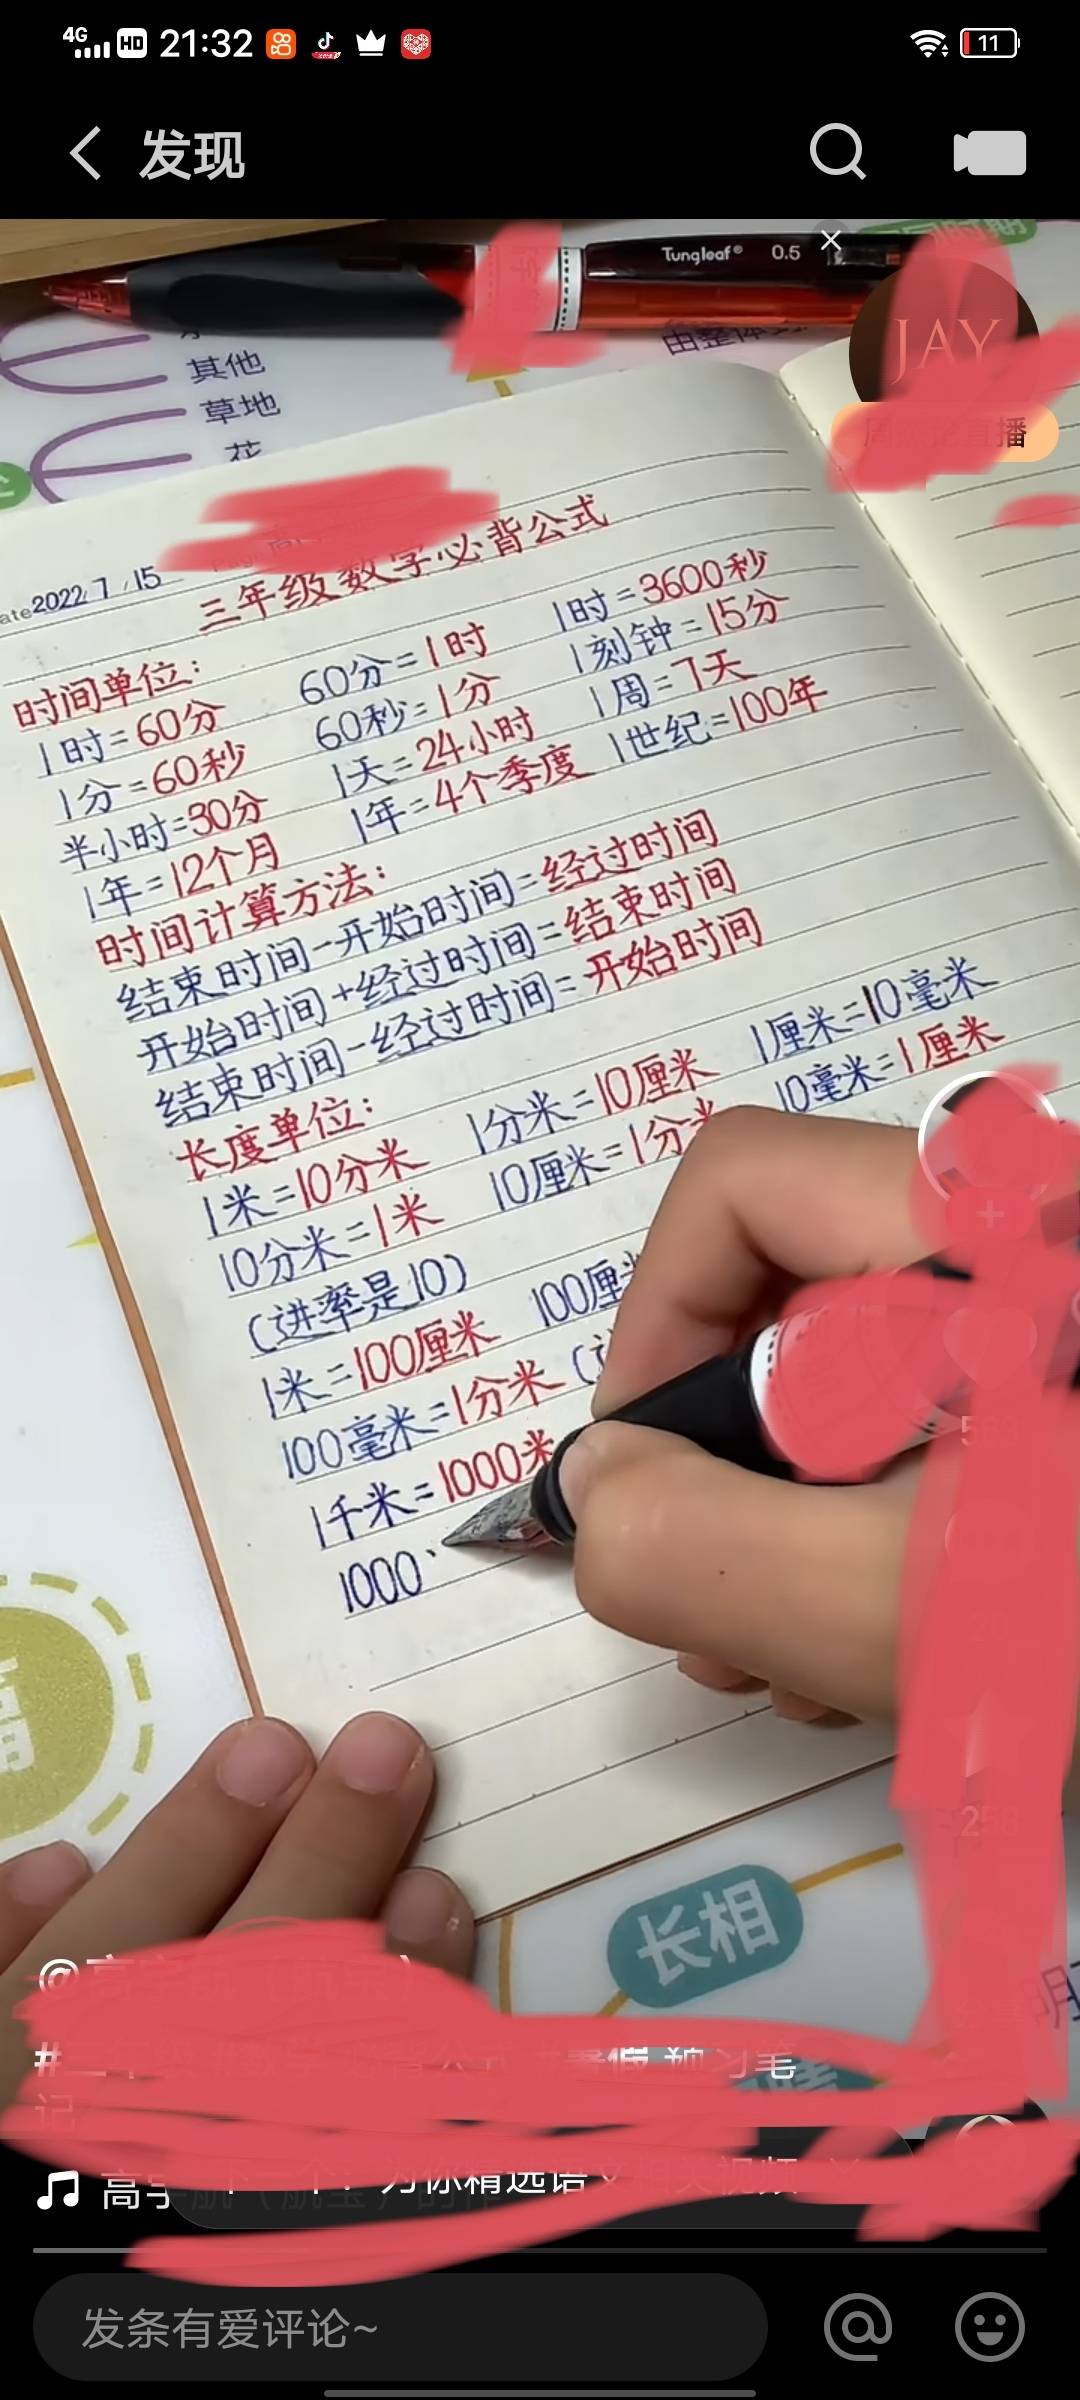 4G HD 21:32 11
发现
Tungleaf® 0.5
其他
草地
花
JAY
直播
Date 2022 7 15
三年级数学必背公式
时间单位： 60分=1时 1时=3600秒
1时=60分 60秒=1分 1刻钟=15分
1分=60秒 1天=24小时 1周=7天
半小时=30分 1年=4个季度 1世纪=100年
1年=12个月
时间计算方法：
结束时间-开始时间=经过时间
开始时间+经过时间=结束时间
结束时间-经过时间=开始时间
长度单位： 1分米=10厘米 1厘米=10毫米
1米=10分米 10厘米=1分米 10毫米=1厘米
10分米=1米
(进率是10)
1米=100厘米 100厘米
100毫米=1分米 (
1千米=1000米
1000
长相
@
#
记
为你精选语文相关视频
发条有爱评论~